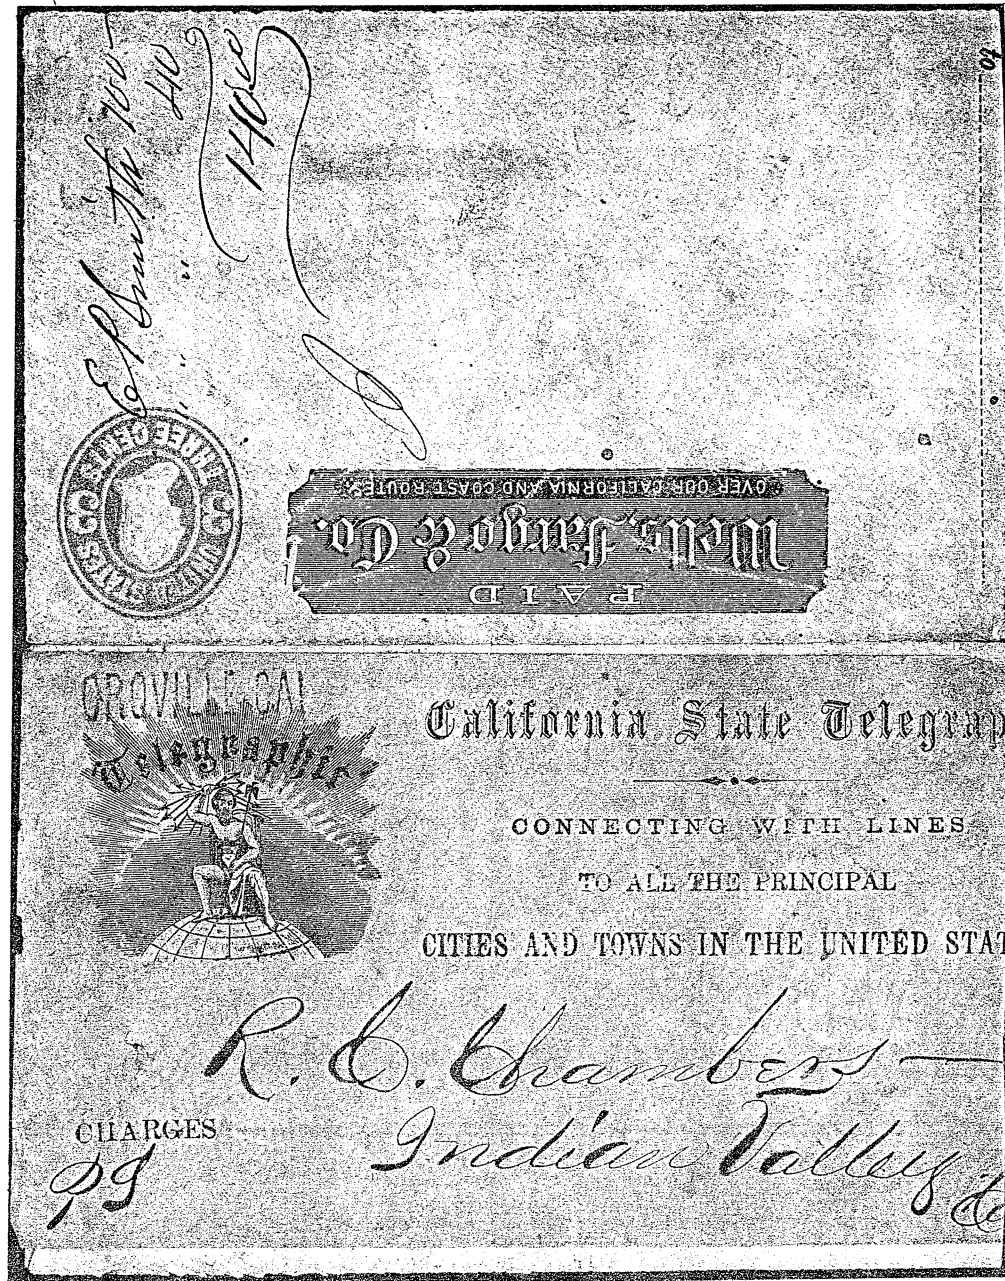 E P Smith 700
" " 40
1400
THREE CENTS
UNITED STATES
PAID
Wells, Fargo & Co.
OVER OUR CALIFORNIA AND COAST ROUTES.
OROVILLE CAL
Telegraphic
California State Telegrap
CONNECTING WITH LINES
TO ALL THE PRINCIPAL
CITIES AND TOWNS IN THE UNITED STAT
R. C. Chambers
Indian Valley
CHARGES